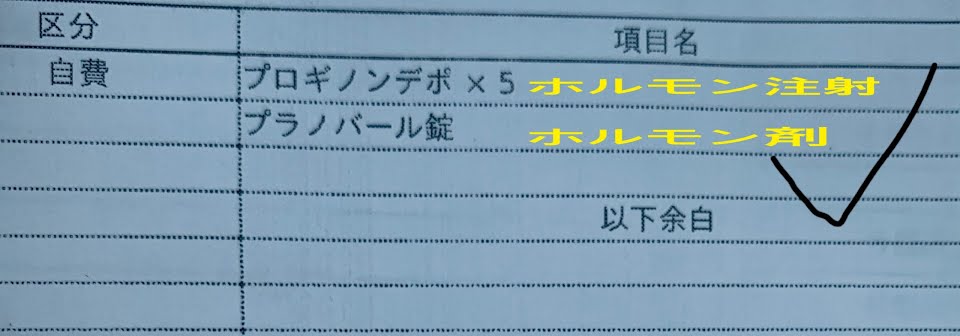 区分 項目名
自費 プロギノンデポ × 5 ホルモン注射
プラノバール錠 ホルモン剤
以下余白